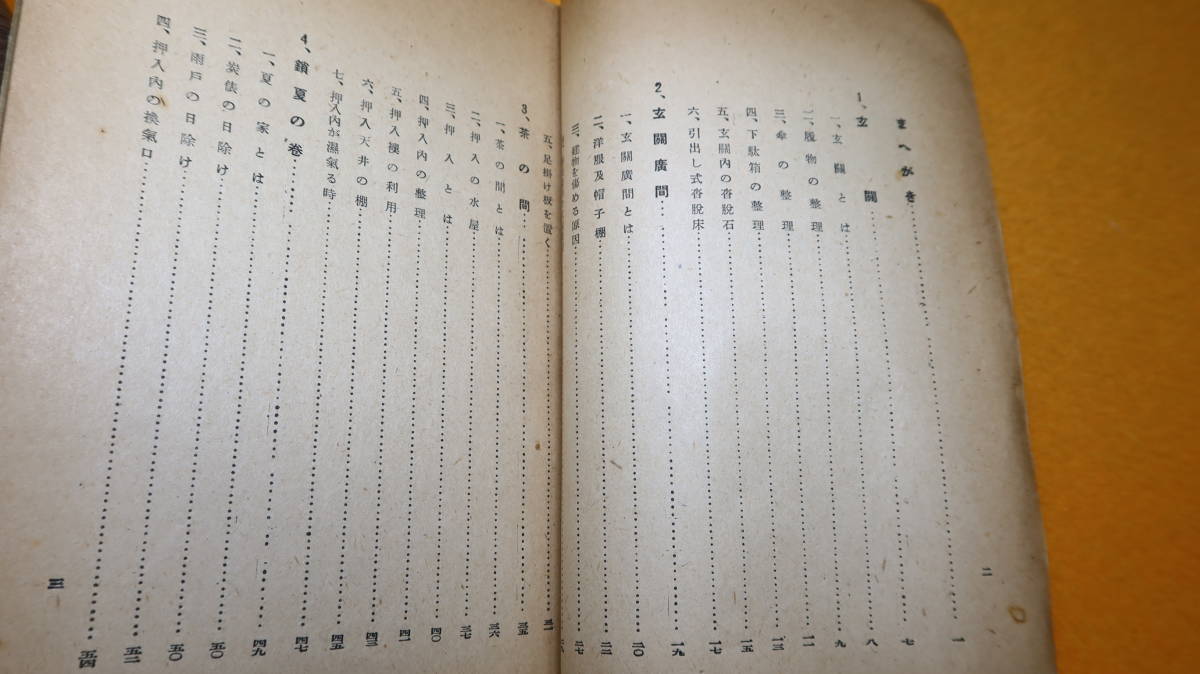 二
まへがき……一
1、玄關……七
一、玄關とは……八
二、履物の整理……九
三、傘の整理……一一
四、下駄箱の整理……一三
五、玄關内の沓脱石……一五
六、引出し式沓脱床……一七
2、玄關廣間……一九
一、玄關廣間とは……二〇
二、洋服及帽子棚……二二
三、建物を傷める原因……二七
五、足掛け板を置く……三一
3、茶の間……三五
一、茶の間とは……三六
二、押入の水屋……三七
三、押入とは……四〇
四、押入内の整理……四一
五、押入襖の利用……四三
六、押入天井の棚……四五
七、押入内が濕氣る時……四七
4、鎖夏の卷……四九
一、夏の家とは……五〇
二、炭俵の日除け……五〇
三、雨戸の日除け……五二
四、押入内の換氣口……五四
三